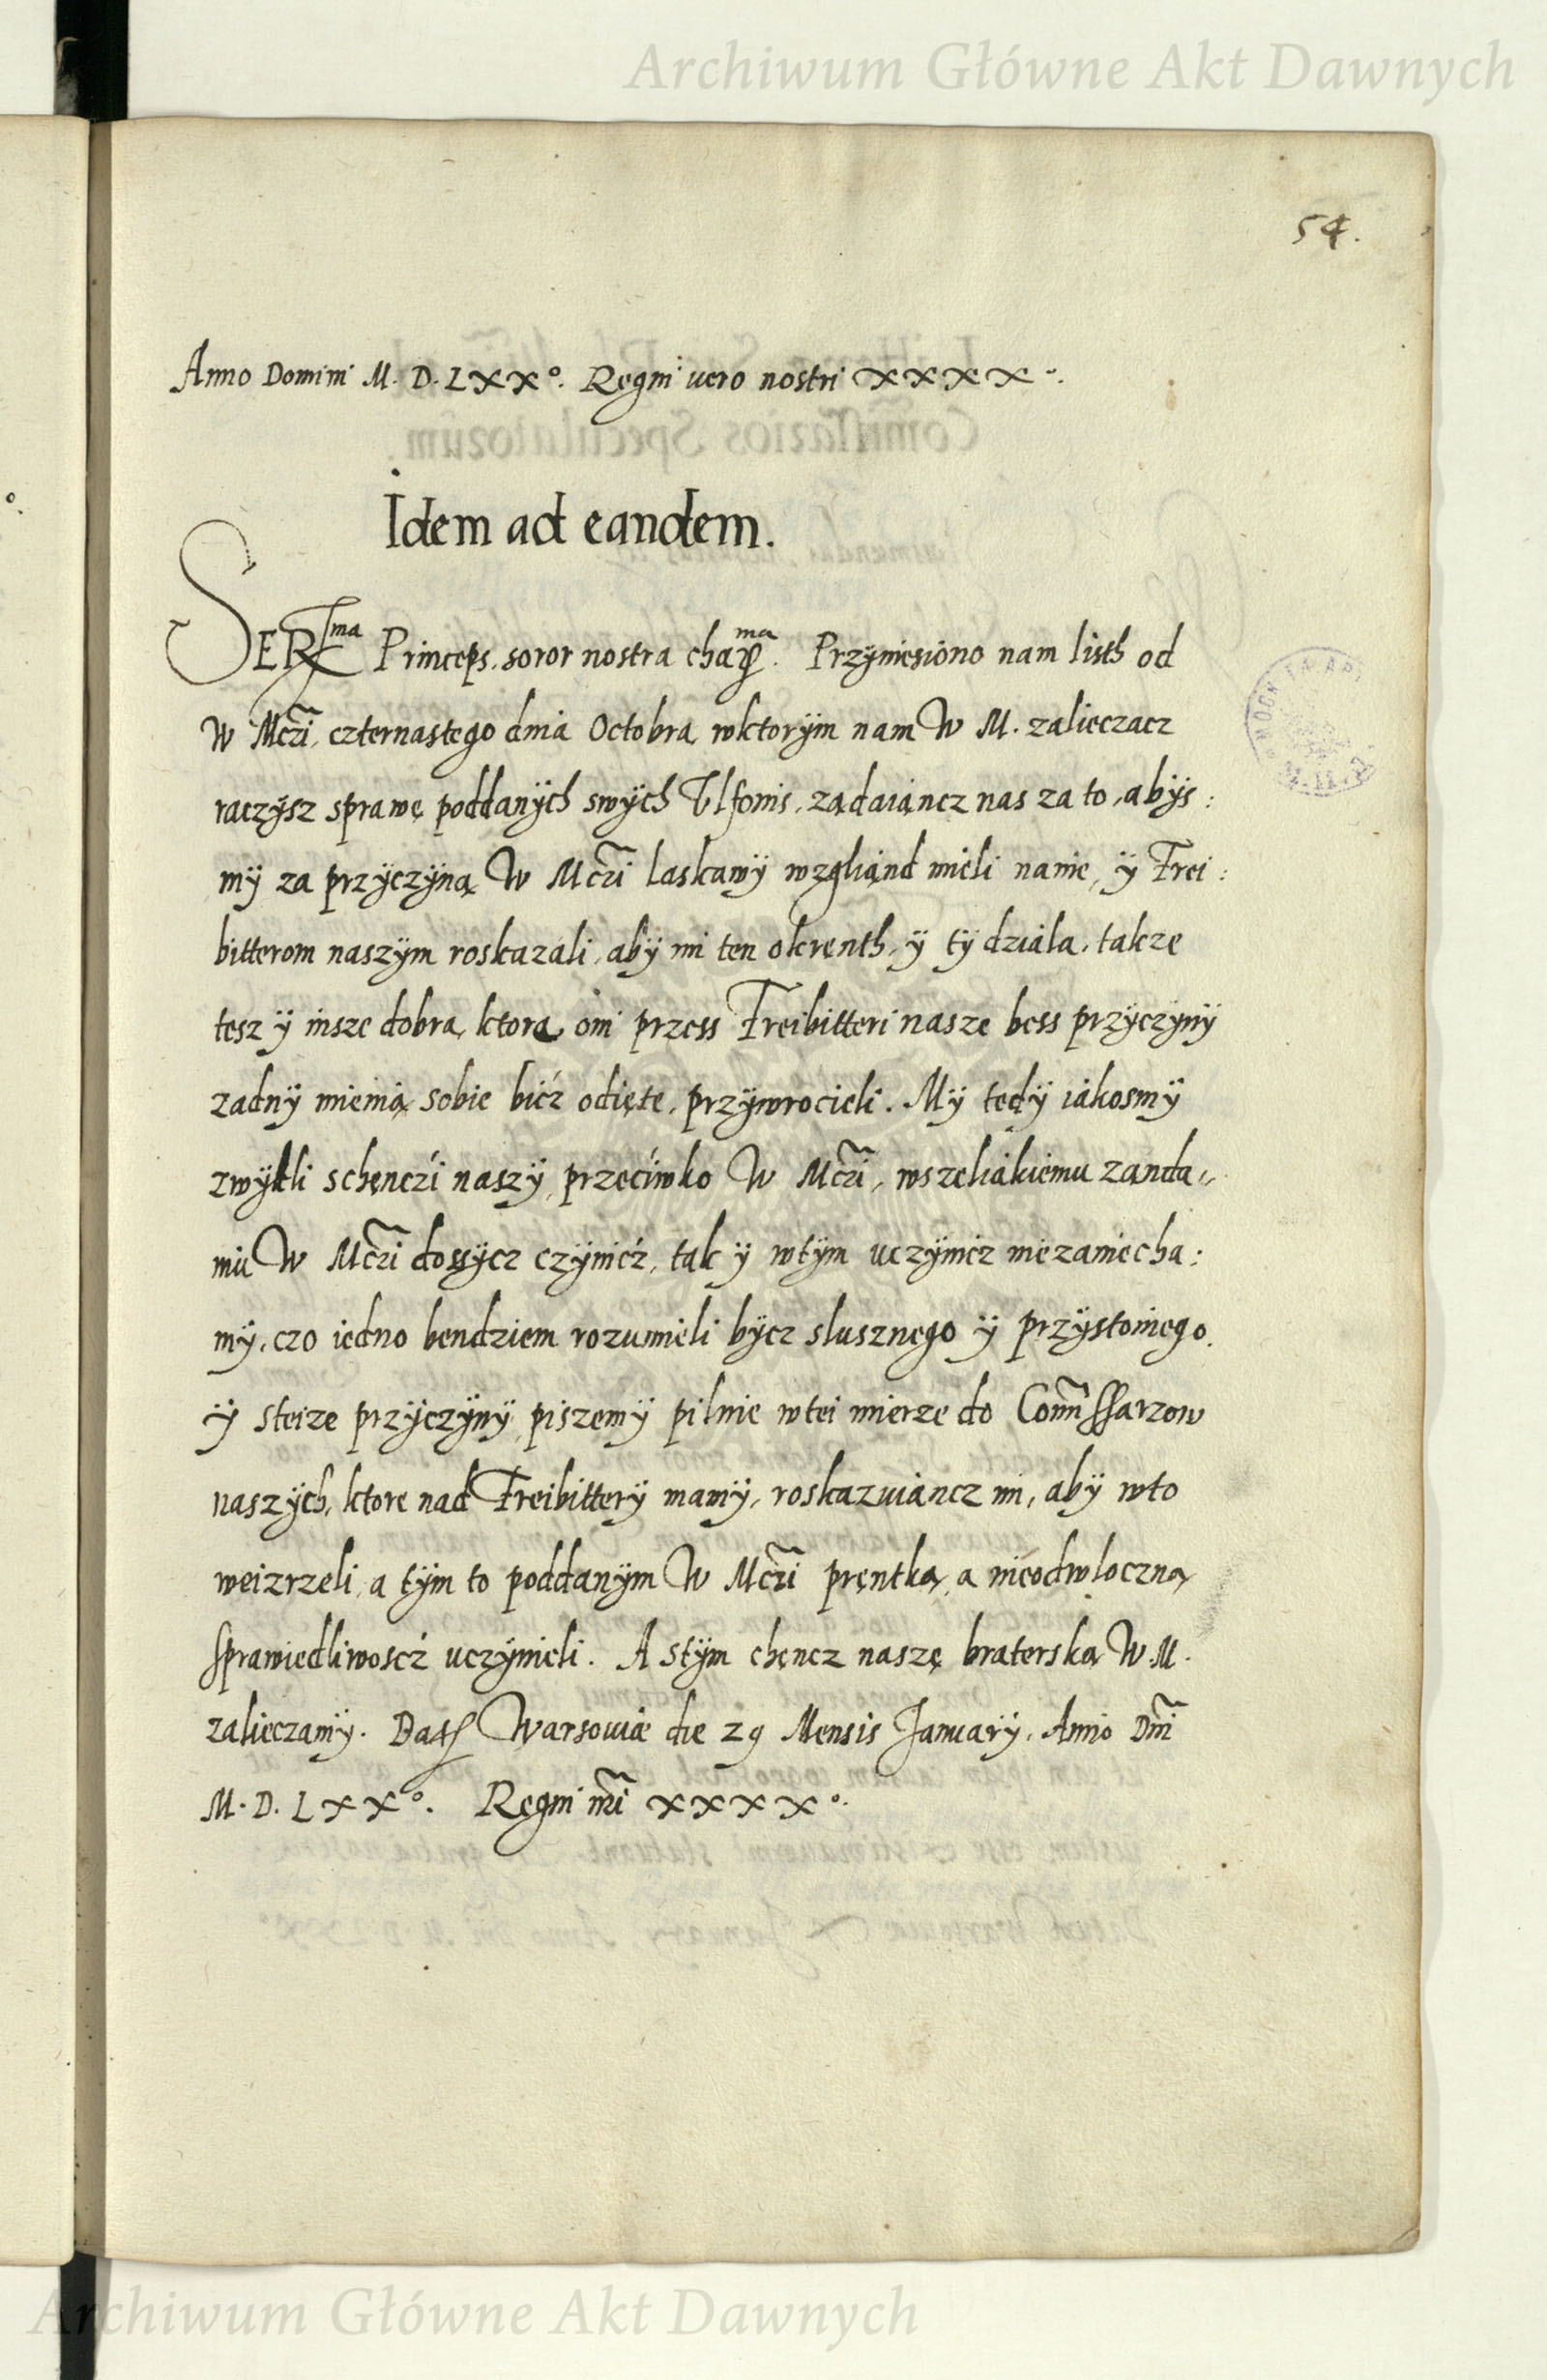 Archiwum Główne Akt Dawnych
54.
Anno Domini M. D. LXXº. Regni vero nostri XXXXº.
Idem ad eandem.
SERma Princeps, soror nostra charma. Przÿniesiono nam listh od
W Mczi, czternastego dnia Octobra, wktorÿm nam W M. zalieczacz
raczÿsz sprawę poddanÿch swÿch Ulfonis, ządaiąncz nas za to, abÿs:
mÿ za przÿczÿną W Mczi laskawÿ wzgliąnd mieli nanie, ÿ Frei:
bitterom naszÿm roskazali, abÿ im ten okrenth, ÿ tÿ dziala, takze
tesz ÿ insze dobra, ktorą oni przess Freibitteri nasze bess przÿczÿnÿ
zadnÿ mienią sobie bićz odięte, przÿwrocieli. Mÿ tedÿ iakosmÿ
zwÿkli schęnczi naszÿ, przeciwko W Mczi, wszeliakiemu ząnda„
niu W Mczi dossÿcz czÿnićz, tak ÿ wtÿm uczÿnicz niezaniecha:
mÿ, czo iedno bendziem rozumieli bÿcz slusznego ÿ przÿstoinego.
ÿ steize przÿczÿnÿ, piszemÿ pilnie wtei mierze do Comissarzow
naszÿch, ktore nad Freibitterÿ mamÿ, roskazuiąncz im, abÿ wto
weizrzeli, a tÿm to poddanÿm W Mczi pręntką, a nieodwloczną
sprawiedliwosćz uczÿnieli. A stÿm chęncz naszę braterską W. M.
zalieczamÿ. Dat Warsouiæ die 29 Mensis Januarÿ. Anno Dni
M. D. LXXº. Regni nri XXXXº.
Archiwum Główne Akt Dawnych